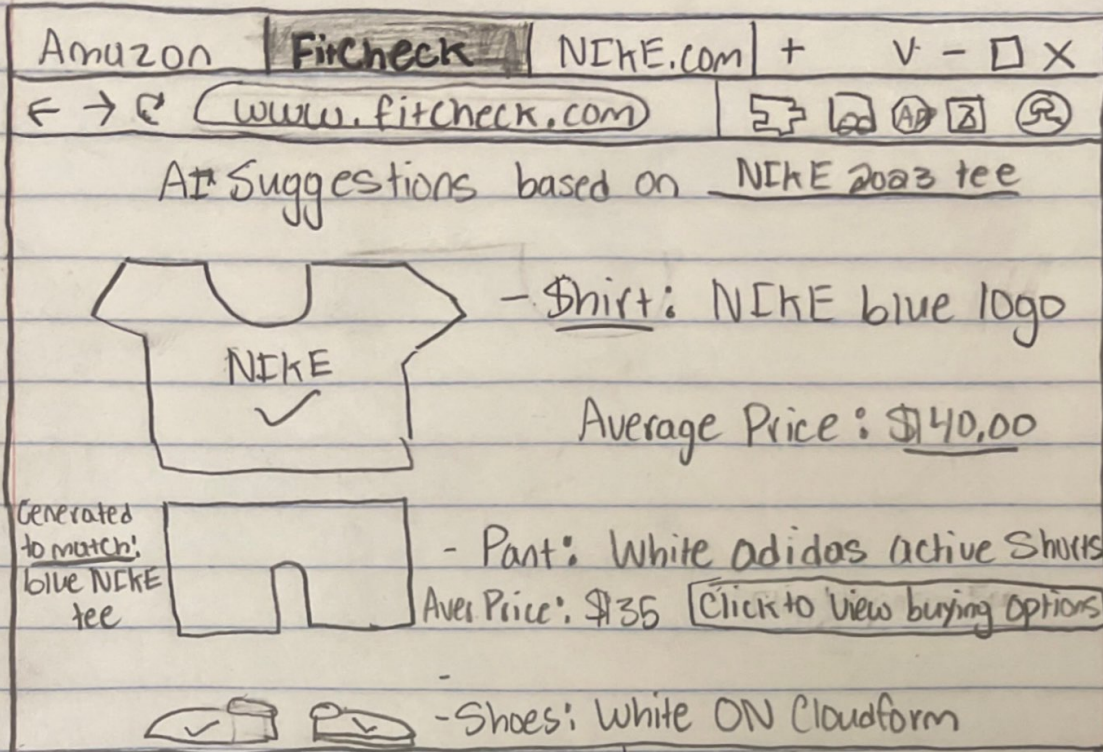 Amazon FitCheck NIKE.com + V - X
www.fitcheck.com AD
AI Suggestions based on NIKE 2023 tee
- Shirt: NIKE blue logo
NIKE
Average Price: $40.00
Generated
to match:
blue NIKE
tee
- Pant: White adidas active Shorts
Aver Price: $35 Click to view buying options
- Shoes: White ON Cloudform